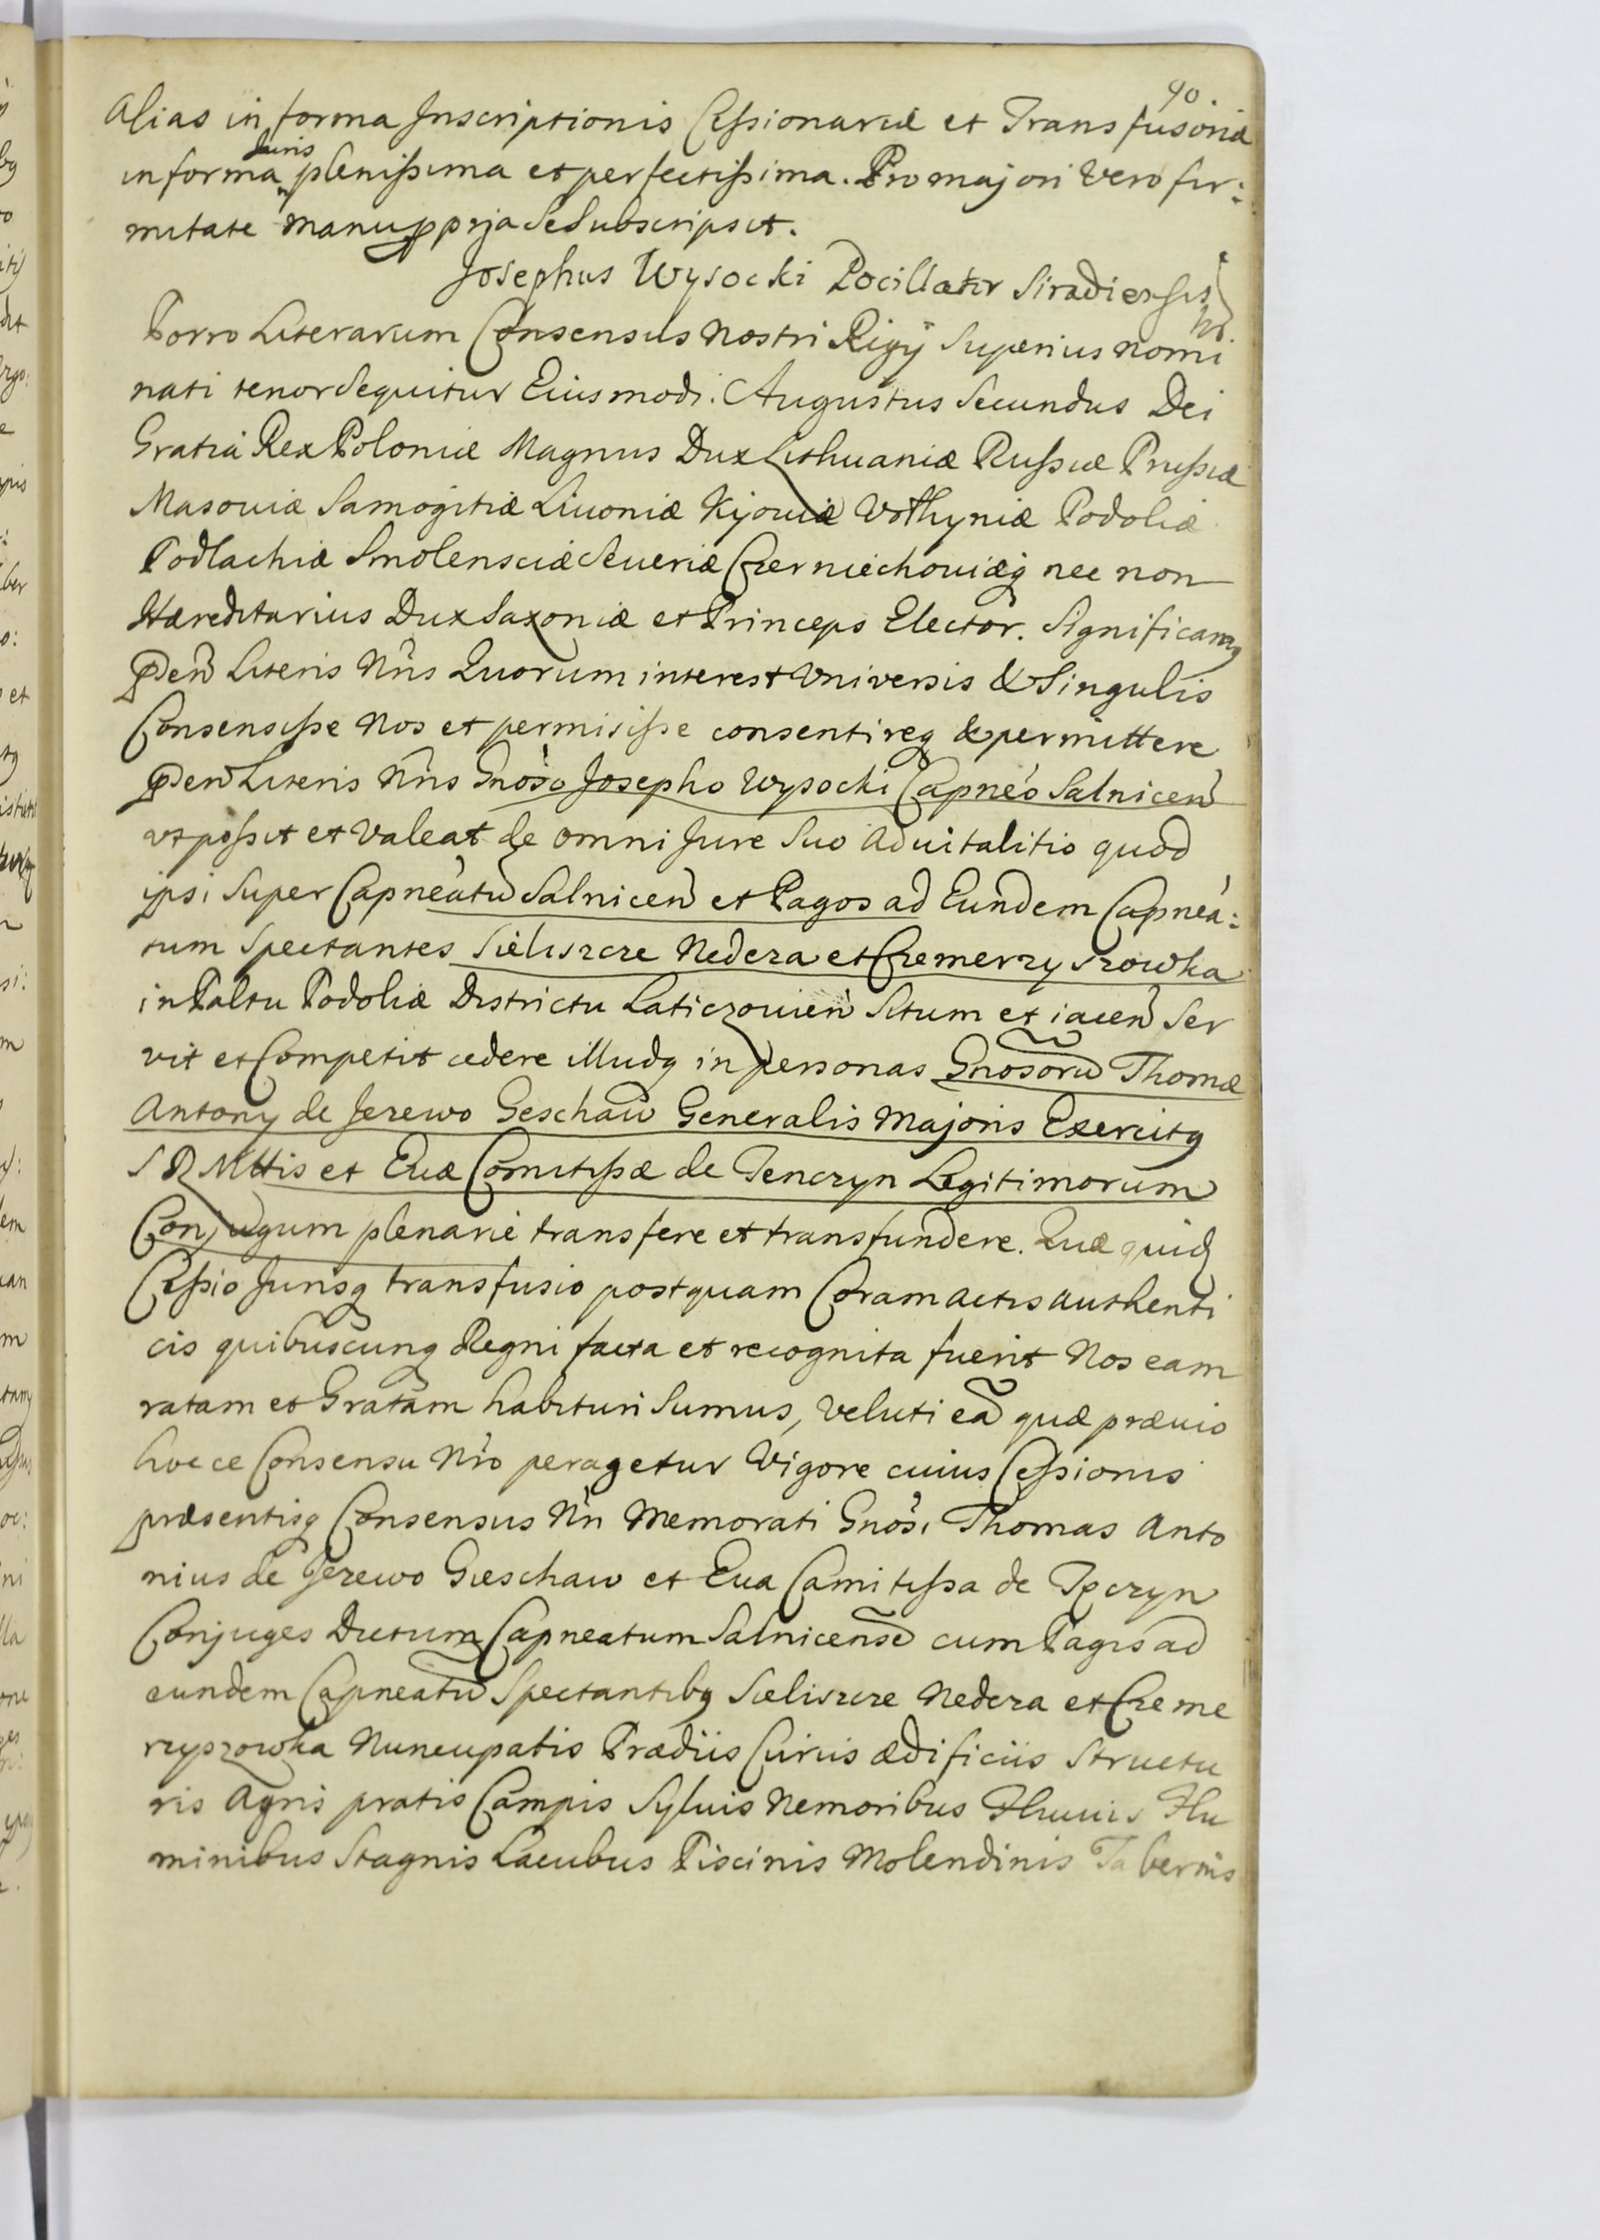 90
Alias in forma Inscriptionis Cessionariæ et Transfusoriæ
in forma Juris plenissima et perfectissima. Pro majori vero fir:
mitate manu pprja se subscripsit.
Josephus Wysocki Pocillator Siradiensis
Porro Literarum Consensus Nostri Rigÿ Superius nomi
nati tenor sequitur Eiusmodi. Augustus Secundus Dei
Gratia Rex Poloniæ Magnus Dux Lithuaniæ Russiæ Prussiæ
Masoviæ Samogitiæ Livoniæ Kijoviæ Volhyniæ Podoliæ
Podlachiæ Smolensciæ Severiæ Czerniechoviæq nec non
Hæreditarius Dux Saxoniæ et Princeps Elector. Significamq
Pden Literis Nris Quorum interest Universis & Singulis
Consensisse Nos et permisisse consentireq & permittere
Pden Literis Nris Gnoso Josepho Wysocki Capneo Salnicen
ut possit et valeat de omni Jure Suo advitalitio quod
ipsi Super Capneatu Salnicen et Pagos ad Eundem Capnea:
tum Spectantes Sieliszcze Nedeza et Czemerzyszowka
in Paltu Podoliæ Districtu Laticzovien Situm et iacen Ser
vit et Competit cedere illudq in personas Gnosoru Thomæ
Antony de Jerewo Geschaw Generalis Majoris Exercitq
S R Mttis et Evæ Comitissæ de Tenczyn Legitimorum
Conjugum plenarie transfere et transfundere. Quæ quid
Cessio Jurisq transfusio postquam Coram actis authenti
cis quibuscunq Regni facta et recognita fuerit Nos eam
ratam et Gratam habituri Sumus, veluti ea quæ prævio
hocce Consensu Nro peragetur Vigore cuius Cessionis
præsentisq Consensus Nri Memorati Gnosi Thomas Anto
nius de Jerewo Gieschaw et Eva Camitissa de Tęczyn
Conjuges Dictum Capneatum Salnicense cum Pagis ad
eundem Capneatu Spectantibq Sieliszcze Nedeza et Czeme
rzyszowka Nuncupatis Prædiis Curiis ædificiis Structu
ris Agris pratis Campis Sylvis Nemoribus Fluviis Flu
minibus Stagnis Lacubus Piscinis Molendinis Tabernis